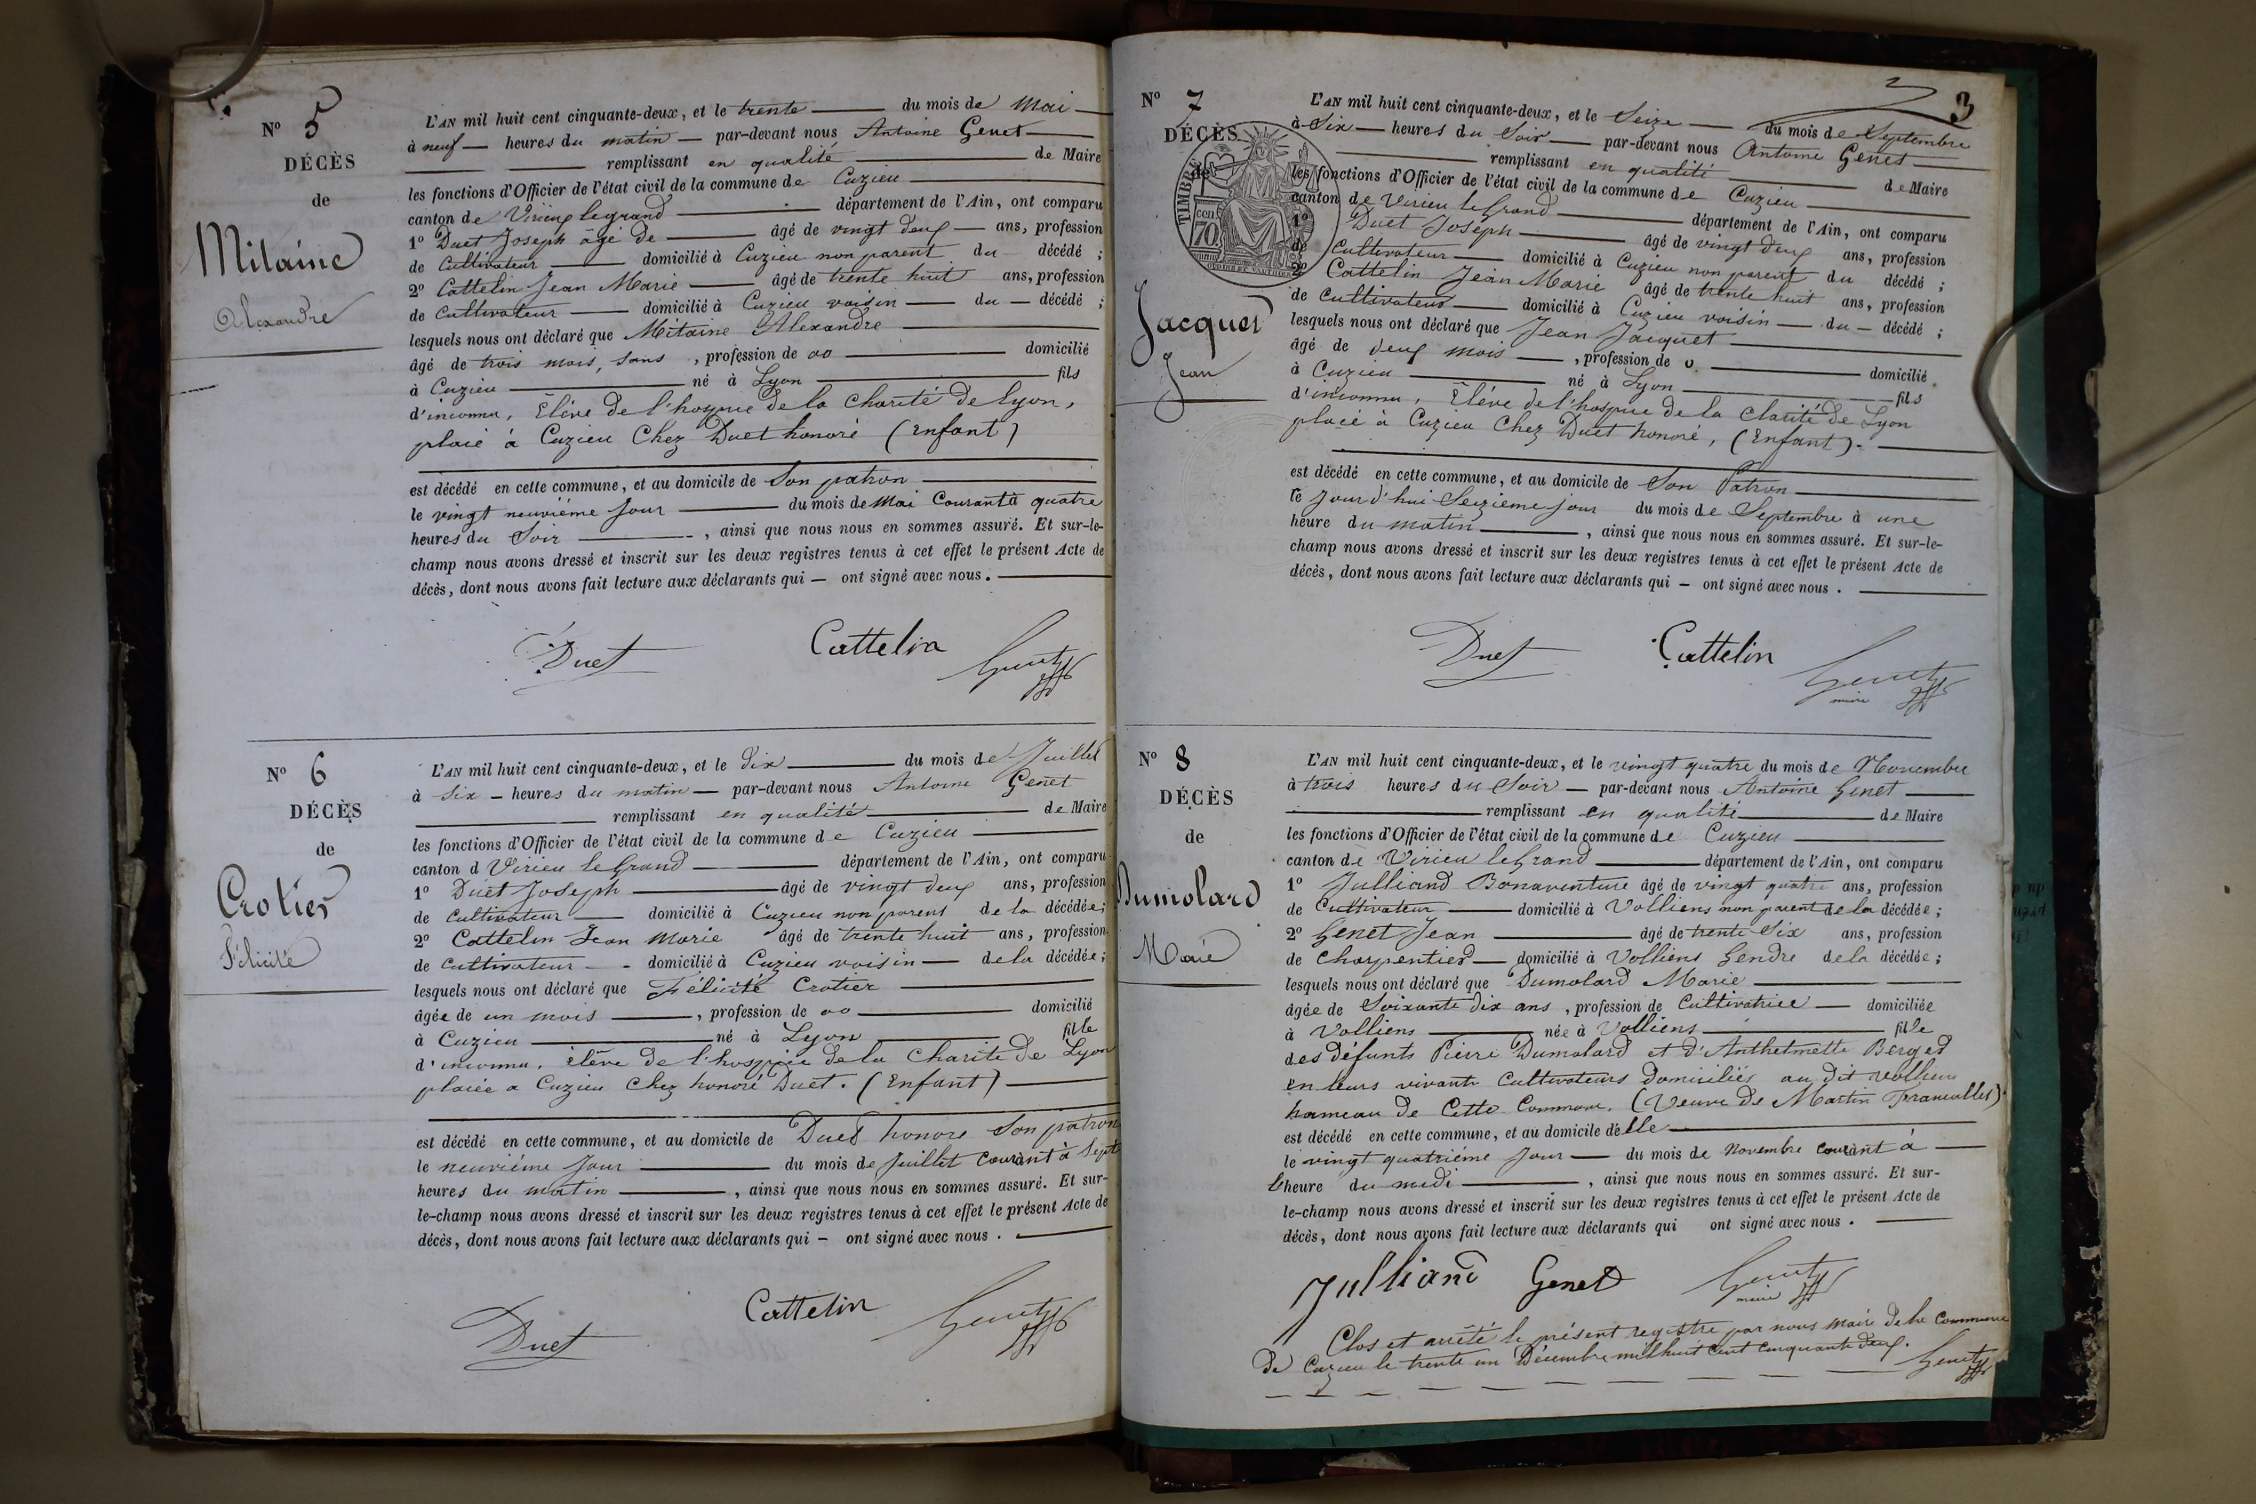 Nº 5
DÉCÈS
de
Mitaine
Alexandre
L'AN mil huit cent cinquante-deux, et le trente du mois de Mai
à neuf heures du matin par-devant nous Antoine Genet
remplissant en qualité de Maire
les fonctions d'Officier de l'état civil de la commune de Cuzieu
canton de Virieu legrand département de l'Ain, ont comparu
1º Duet Joseph âgé de âgé de vingt deux ans, profession
de Cultivateur domicilié à Cuzieu non parent du décédé ;
2º Cattelin Jean Marie âgé de trente huit ans, profession
de Cultivateur domicilié à Cuzieu voisin du décédé ;
lesquels nous ont déclaré que Mitaine Alexandre
âgé de trois mois, sans , profession de oo domicilié
à Cuzieu né à Lyon fils
d'inconnu, Élève de l'hospice de la Charité de Lyon,
placé à Cuzieu Chez Duet honoré (Enfant)
est décédé en cette commune, et au domicile de Son patron
le vingt neuvième jour du mois de Mai Courant à quatre
heures du Soir , ainsi que nous nous en sommes assuré. Et sur-le-
champ nous avons dressé et inscrit sur les deux registres tenus à cet effet le présent Acte de
décès, dont nous avons fait lecture aux déclarants qui — ont signé avec nous.
Duet Cattelin Genet
Nº 6
DÉCÈS
de
Crotier
Félicité
L'AN mil huit cent cinquante-deux, et le dix du mois de Juillet
à six heures du matin par-devant nous Antoine Genet
remplissant en qualité de Maire
les fonctions d'Officier de l'état civil de la commune de Cuzieu
canton d Virieu le Grand département de l'Ain, ont comparu
1º Duet Joseph âgé de vingt deux ans, profession
de Cultivateur domicilié à Cuzieu non parent de la décédée;
2º Cattelin Jean Marie âgé de trente huit ans, profession
de Cultivateur domicilié à Cuzieu voisin de la décédée;
lesquels nous ont déclaré que Félicité Crotier
âgée de un mois , profession de oo domicilié
à Cuzieu né à Lyon fille
d'inconnu, Élève de l'hospice de la Charité de Lyon
placée a Cuzieu Chez honoré Duet. (Enfant)
est décédé en cette commune, et au domicile de Duet honoré Son patron
le neuvième jour du mois de Juillet Courant à Sept
heures du matin , ainsi que nous nous en sommes assuré. Et sur-
le-champ nous avons dressé et inscrit sur les deux registres tenus à cet effet le présent Acte de
décès, dont nous avons fait lecture aux déclarants qui — ont signé avec nous .
Duet Cattelin Genet
3
Nº 7
DÉCÈS
de
TIMBRE
cen
70
Jacquet
Jean
L'AN mil huit cent cinquante-deux, et le Seize du mois de Septembre
à Six heures du Soir par-devant nous Antoine Genet
remplissant en qualité de Maire
les fonctions d'Officier de l'état civil de la commune de Cuzieu
canton de Virieu le Grand département de l'Ain, ont comparu
1º Duet Joseph âgé de vingt deux ans, profession
de Cultivateur domicilié à Cuzieu non parent du décédé ;
2º Cattelin Jean Marie âgé de trente huit ans, profession
de Cultivateur domicilié à Cuzieu voisin du décédé ;
lesquels nous ont déclaré que Jean Jacquet
âgé de deux mois , profession de o domicilié
à Cuzieu né à Lyon fils
d'inconnu, Élève de l'hospice de la Charité de Lyon
placé à Cuzieu Chez Duet honoré, (Enfant).
est décédé en cette commune, et au domicile de Son Patron
le Jourd'hui Seizième jour du mois de Septembre à une
heure du matin , ainsi que nous nous en sommes assuré. Et sur-le-
champ nous avons dressé et inscrit sur les deux registres tenus à cet effet le présent Acte de
décès, dont nous avons fait lecture aux déclarants qui — ont signé avec nous .
Duet Cattelin Genet
maire
Nº 8
DÉCÈS
de
Dumolard
Marie
L'AN mil huit cent cinquante-deux, et le vingt quatre du mois de Novembre
à trois heures du Soir par-devant nous Antoine Genet
remplissant en qualité de Maire
les fonctions d'Officier de l'état civil de la commune de Cuzieu
canton de Virieu le Grand département de l'Ain, ont comparu
1º Julliand Bonaventure âgé de vingt quatre ans, profession
de Cultivateur domicilié à Volliens non parent de la décédée ;
2º Genet Jean âgé de trente Six ans, profession
de Charpentier domicilié à Volliens Gendre de la décédée ;
lesquels nous ont déclaré que Dumolard Marie
âgée de Soixante dix ans , profession de Cultivatrice domiciliée
à Volliens née à Volliens fille
des défunts Pierre Dumolard et d'Anthelmette Berger
en leurs vivants Cultivateurs domiciliés au dit vollien
hameau de Cette Commune. (Veuve de Martin Francallet).
est décédé en cette commune, et au domicile d'elle
le vingt quatrième jour du mois de Novembre courant à
heure du midi , ainsi que nous nous en sommes assuré. Et sur-
le-champ nous avons dressé et inscrit sur les deux registres tenus à cet effet le présent Acte de
décès, dont nous avons fait lecture aux déclarants qui ont signé avec nous .
Julliand Genet Genet
maire
Clos et arrêté le présent registre par nous maire de la Commune
de Cuzieu le trente un Décembre mil huit cent cinquante deux.
Genet